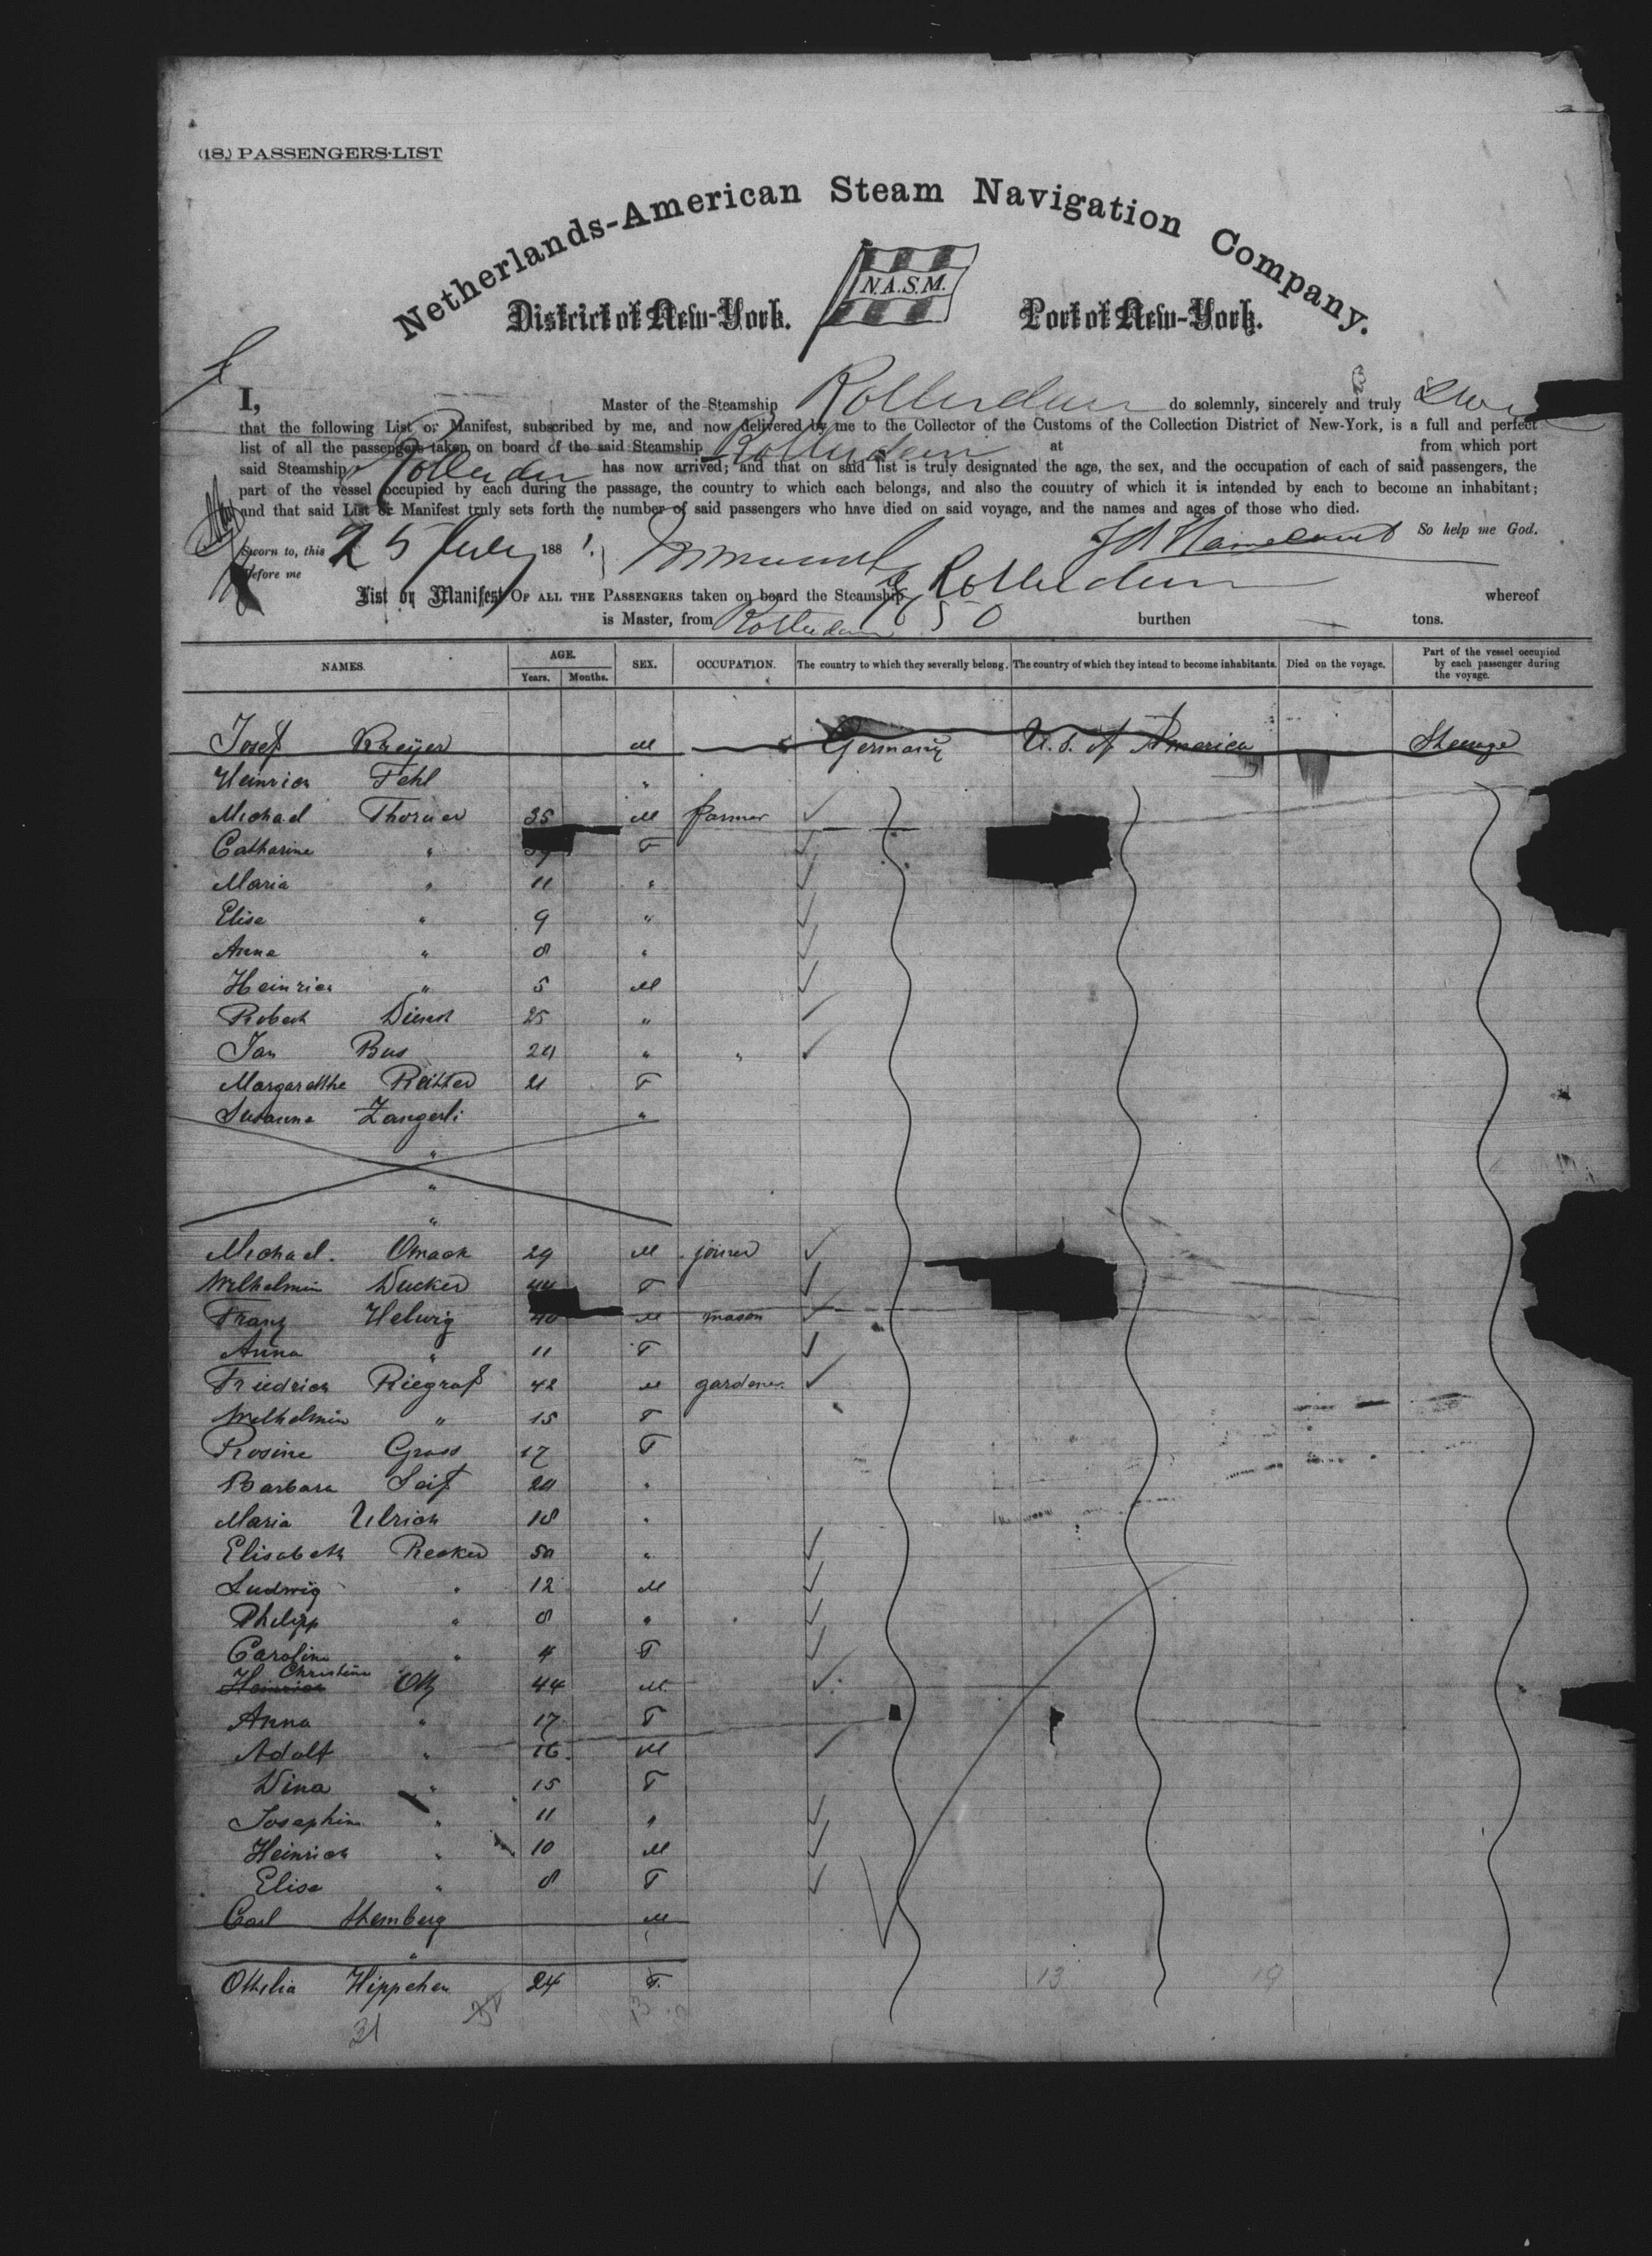 (18.) PASSENGERS-LIST
Netherlands-American Steam Navigation Company.
N.A.S.M.
District of New-York. Port of New-York.
I, Master of the Steamship Rotterdam do solemnly, sincerely and truly
that the following List or Manifest, subscribed by me, and now delivered by me to the Collector of the Customs of the Collection District of New-York, is a full and perfect
list of all the passengers taken on board of the said Steamship Rotterdam at from which port
said Steamship Rotterdam has now arrived; and that on said list is truly designated the age, the sex, and the occupation of each of said passengers, the
part of the vessel occupied by each during the passage, the country to which each belongs, and also the country of which it is intended by each to become an inhabitant;
and that said List or Manifest truly sets forth the number of said passengers who have died on said voyage, and the names and ages of those who died.
So help me God.
Sworn to, this 25 July 1881.
Before me
List or Manifest OF ALL THE PASSENGERS taken on board the Steamship Rotterdam whereof
is Master, from Rotterdam burthen tons.
NAMES. AGE. Years. Months. SEX. OCCUPATION. The country to which they severally belong. The country of which they intend to become inhabitants. Died on the voyage. Part of the vessel occupied by each passenger during the voyage.
Josef Kreijer M Germany U.S. of America Steerage
Heinrich Fehl "
Michael Thorner 35 M farmer
Catharine " F
Maria " 11 "
Elise " 9 "
Anna " 8 "
Heinrich " 5 M
Robert Dienst 25 "
Jan Bus 24 " "
Margarethe Reitter 21 F
Susanna Zangerli "
"
"
"
Michael Omach 29 M joiner
Wilhelmin Ducker 44 F
Franz Helwig 40 M mason
Anna " 11 F
Friedrich Riegraf 42 M gardener
Wilhelmin " 15 F
Rosine Gross 17 F
Barbara Seif 20 "
Maria Ulrich 18 "
Elisabeth Recker 50 "
Ludwig " 12 M
Philipp " 8 "
Carolin " 4 F
Heinrich Christine Ott 44 M
Anna " 17 F
Adolf " 16 M
Dina " 15 F
Josephin " 11 "
Heinrich " 10 M
Elise " 8 F
Carl Stemberg M
"
Othilia Hippchen 24 F.
31
13 19